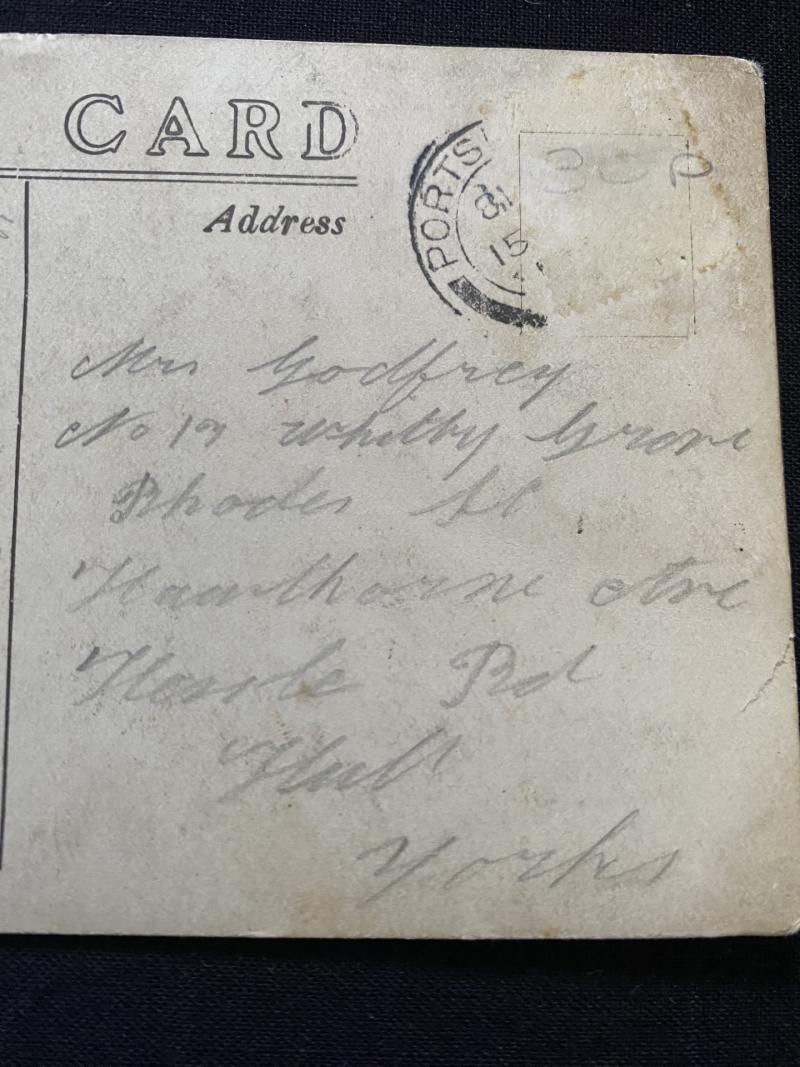 CARD
Address
PORTS
15
30p
Mrs Godfrey
No 19 Whitby Grove
Rhodes St
Hawthorne Ave
Hessle Rd
Hull
Yorks